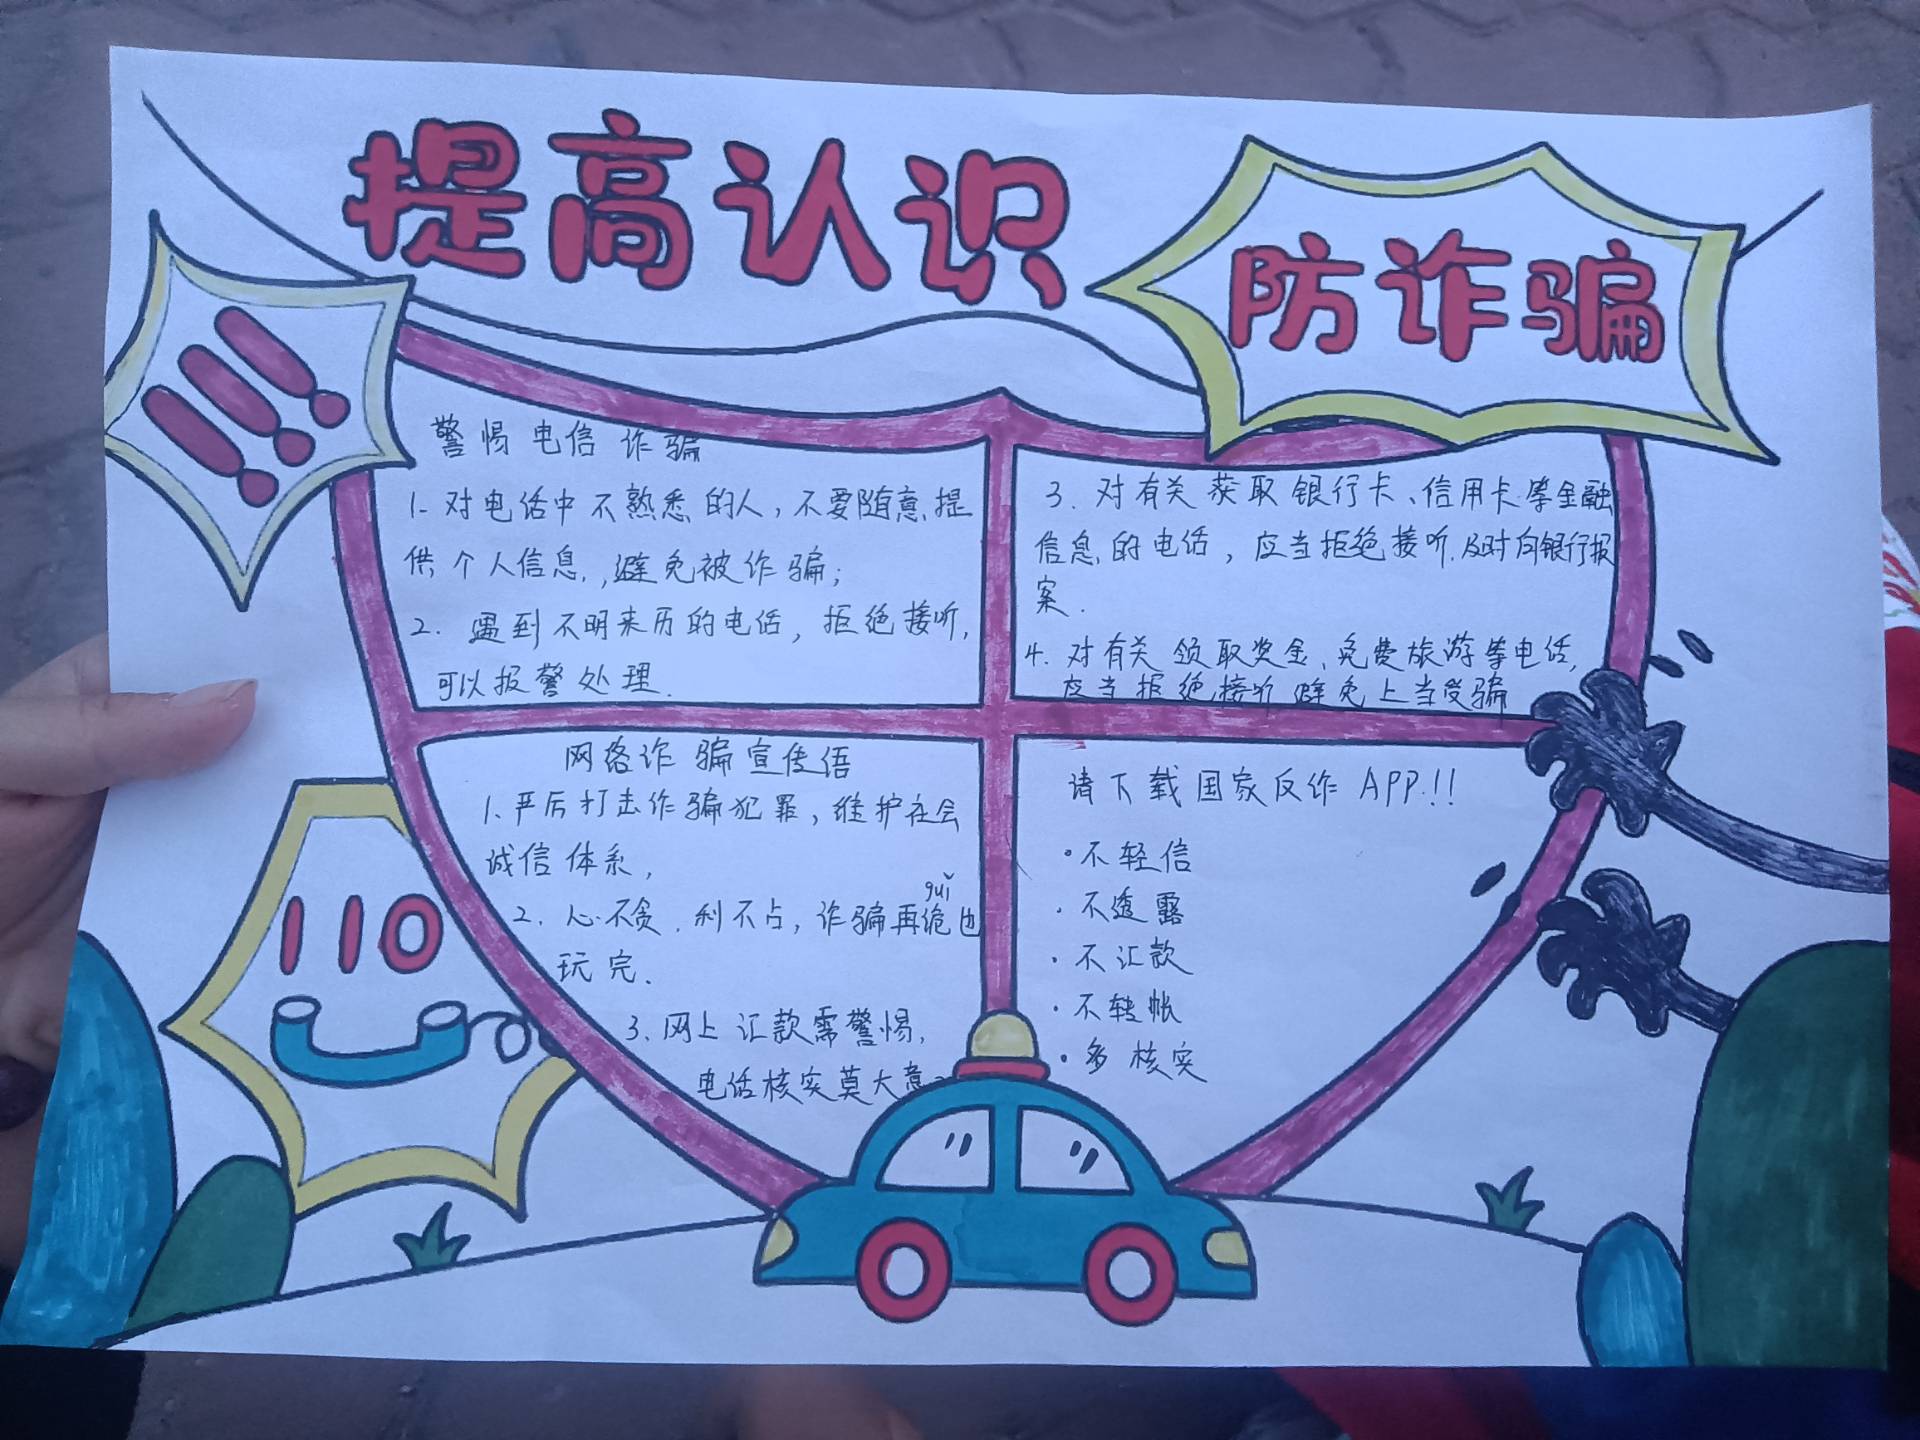 提高认识
防诈骗
!!!
警惕电信诈骗
1. 对电话中不熟悉的人,不要随意提
供个人信息,避免被诈骗;
2. 遇到不明来历的电话,拒绝接听,
可以报警处理.
3. 对有关获取银行卡、信用卡等金融
信息的电话,应当拒绝接听.及时向银行报
案.
4. 对有关领取奖金、免费旅游等电话,
应当拒绝接听避免上当受骗
网络诈骗宣传语
1. 严厉打击诈骗犯罪,维护社会
诚信体系,
guǐ
2. 心不贪.利不占,诈骗再诡也
玩完.
3. 网上汇款需警惕,
电话核实莫大意
请下载国家反诈APP!!
·不轻信
·不透露
·不汇款
·不转帐
·多核实
110